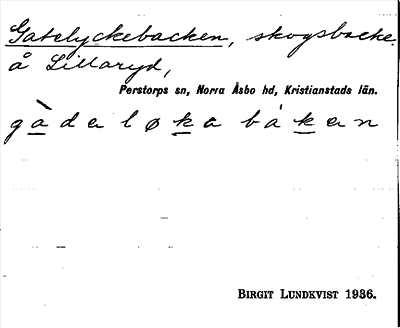 Gatelyckebacken, skogsbacke
å Lillaryd,
Perstorps sn, Norra Åsbo hd, Kristianstads län.
gàdeløka bákan
BIRGIT LUNDKVIST 1936.